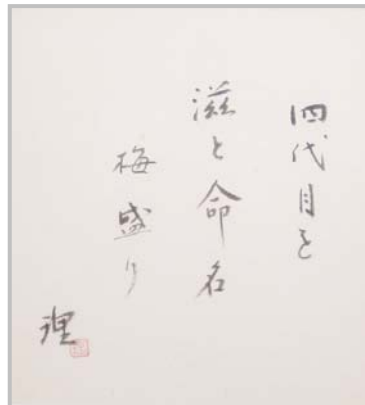 四代目を
滋と命名
梅盛り
理